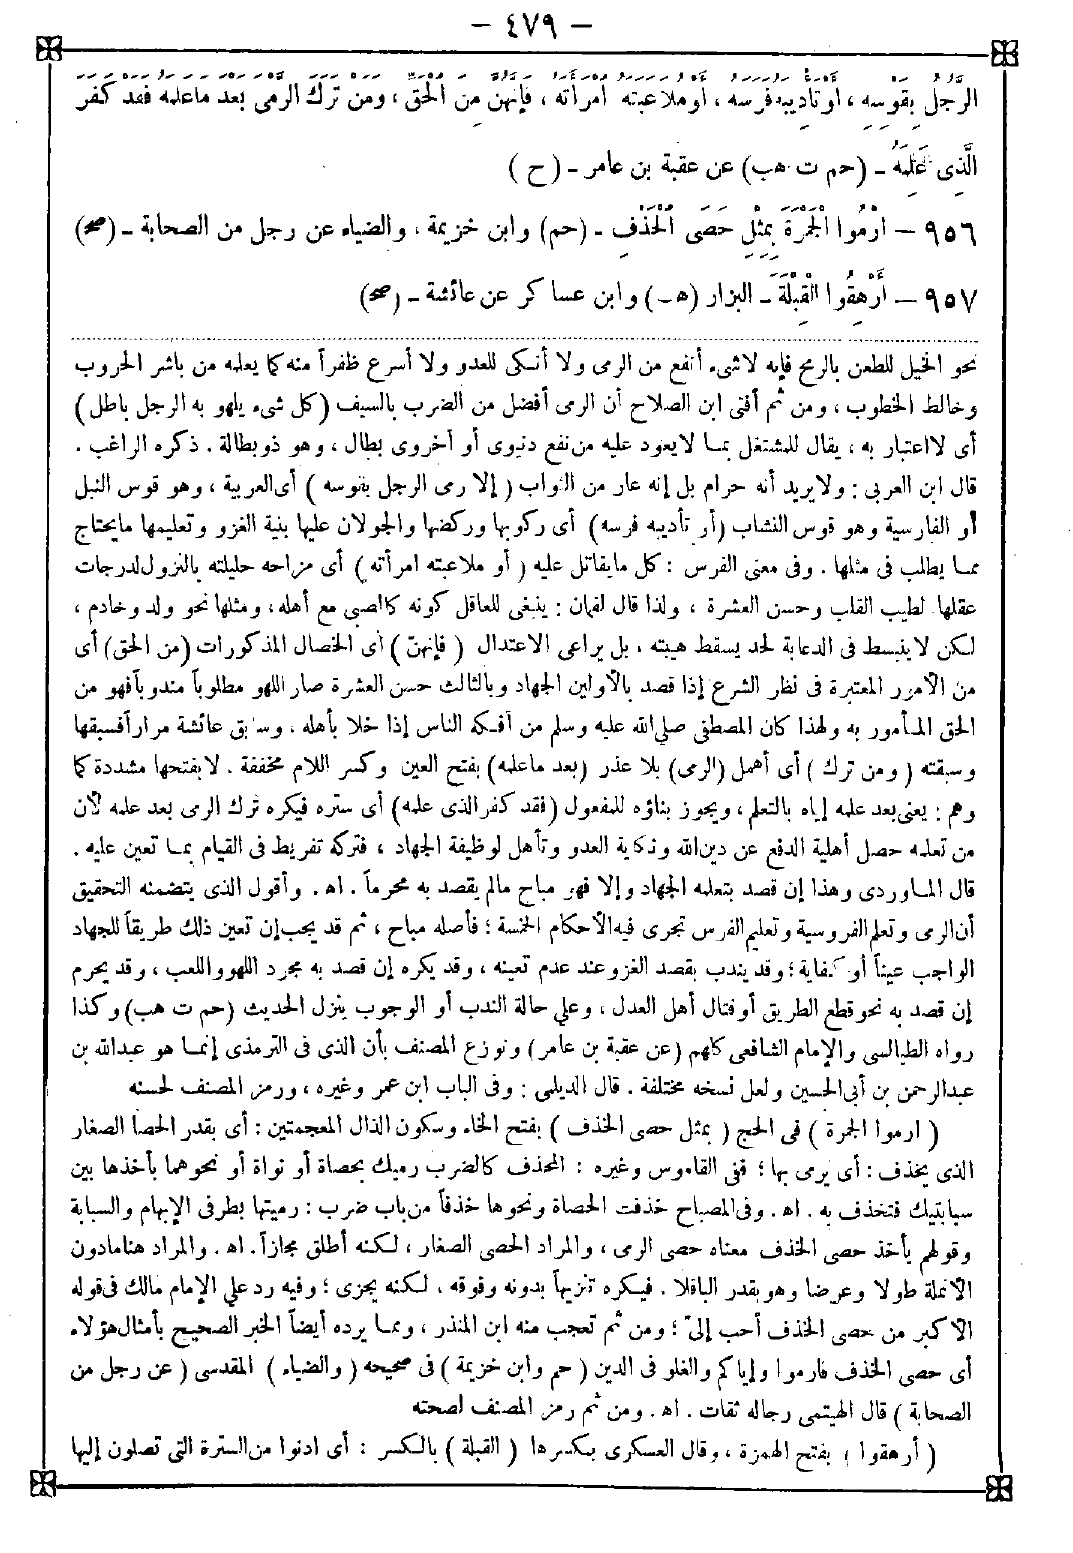 – ٤٧٩ –
الرَّجُلِ بِقَوْسِهِ ، أو تَأدِيبِهِ فَرَسَهُ ، أو مُلاعَبتِهِ امْرَأَتَهُ ، فَإنَّهُنَّ مِنَ الْحَقِّ ، ومَنْ تَرَكَ الرَّمْىَ بَعْدَ ماعَلِمَهُ فَقَدْ كَفَرَ
الَّذِى عَلِمَهُ ـ (حم ت هب) عن عقبة بن عامر ـ (ح)
٩٥٦ – ارْمُوا الْجَمْرَةَ بِمِثْلِ حَصَى الْخَذْفِ ـ (حم) وابن خزيمة ، والضياء عن رجل من الصحابة ـ (صح)
٩٥٧ – أَرْهِقُوا الْقِبْلَةَ ـ البزار (هـ) وابن عساكر عن عائشة ـ (صح)
نحو الخيل للطعن بالرمح فإنه لاشىء أنفع من الرمى ولا أنكى للعدو ولا أسرع ظفراً منه كما يعلمه من باشر الحروب
وخالط الخطوب ، ومن ثم أفتى ابن الصلاح أن الرمى أفضل من الضرب بالسيف (كل شىء يلهو به الرجل باطل)
أى لااعتبار به ، يقال للمشتغل بمـا لايعود عليه من نفع دنيوى أو أخروى بطال ، وهو ذو بطالة . ذكره الراغب .
قال ابن العربى : ولايريد أنه حرام بل إنه عار من الثواب (إلا رمى الرجل بقوسه) أى العربية ، وهو قوس النبل
أو الفارسية وهو قوس النشاب (أو تأديبه فرسه) أى ركوبها وركضها والجولان عليها بنية الغزو وتعليمها مايحتاج
ممـا يطلب فى مثلها . وفى معنى الفرس : كل مايقاتل عليه (أو ملاعبته امرأته) أى مزاحه حليلته بالنزول لدرجات
عقلها لطيب القلب وحسن العشرة ، ولذا قال لقمان : ينبغى للعاقل كونه كالصبى مع أهله ، ومثلها نحو ولد وخادم ،
لكن لاينبسط فى الدعابة لحد يسقط هيبته ، بل يراعى الاعتدال (فإنهنّ) أى الخصال المذكورات (من الحق) أى
من الأمور المعتبرة فى نظر الشرع إذا قصد بالأولين الجهاد وبالثالث حسن العشرة صار اللهو مطلوباً مندوباً فهو من
الحق المـأمور به ولهذا كان المصطفى صلى الله عليه وسلم من أفـكه الناس إذا خلا بأهله ، وسابق عائشة مراراً فسبقها
وسبقته (ومن ترك) أى أهمل (الرمى) بلا عذر (بعد ماعلمه) بفتح العين وكسر اللام مخففة . لابفتحها مشددة كما
وهم : يعنى بعد علمه إياه بالتعلم ، ويجوز بناؤه للمفعول (فقد كفر الذى علمه) أى ستره فيكره ترك الرمى بعد علمه لأن
من تعلمه حصل أهلية الدفع عن دين الله ونكاية العدو وتأهل لوظيفة الجهاد ، فتركه تفريط فى القيام بمـا تعين عليه .
قال المـاوردى وهذا إن قصد بتعلمه الجهاد وإلا فهو مباح مالم يقصد به محرماً . اهـ . وأقول الذى يتضمنه التحقيق
أن الرمى وتعلم الفروسية وتعليم الفرس تجرى فيه الأحكام الخمسة ؛ فأصله مباح ، ثم قد يجب إن تعين ذلك طريقاً للجهاد
الواجب عيناً أو كفاية ؛ وقد يندب بقصد الغزو عند عدم تعينه ، وقد يكره إن قصد به مجرد اللهو واللعب ، وقد يحرم
إن قصد به نحو قطع الطريق أو قتال أهل العدل ، وعلى حالة الندب أو الوجوب ينزل الحديث (حم ت هب) وكذا
رواه الطيالسى والإمام الشافعى كلهم (عن عقبة بن عامر) ونوزع المصنف بأن الذى فى الترمذى إنمـا هو عبدالله بن
عبدالرحمن بن أبى الحسين ولعل نسخه مختلفة . قال الديلمى : وفى الباب ابن عمر وغيره ، ورمز المصنف لحسنه
(ارموا الجمرة) فى الحج (بمثل حصى الخذف) بفتح الخاء وسكون الذال المعجمتين : أى بقدر الحصا الصغار
الذى يخذف : أى يرمى بها ؛ ففى القاموس وغيره : المخذف كالضرب رميك بحصاة أو نواة أو نحوهما بأخذها بين
سبابتيك فتخذف به . اهـ . وفى المصباح خذفت الحصاة ونحوها خذفاً من باب ضرب : رميتها بطرفى الإبهام والسبابة
وقولهم يأخذ حصى الخذف معناه حصى الرمى ، والمراد الحصى الصغار ، لكنه أطلق مجازاً . اهـ . والمراد هنا مادون
الأنملة طولا وعرضا وهو بقدر الباقلا . فيكره تنزيهاً بدونه وفوقه ، لكنه يجزى ؛ وفيه رد على الإمام مالك فى قوله
الأكبر من حصى الخذف أحب إلىّ ؛ ومن ثم تعجب منه ابن المنذر ، وممـا يرده أيضاً الخبر الصحيح بأمثال هؤلاء
أى حصى الخذف فارموا وإياكم والغلو فى الدين (حم وابن خزيمة) فى صحيحه (والضياء) المقدسى (عن رجل من
الصحابة) قال الهيتمى رجاله ثقات . اهـ . ومن ثم رمز المصنف لصحته
(أرهقوا) بفتح الهمزة ، وقال العسكرى بكسرها (القبلة) بالكسر : أى ادنوا من السترة التى تصلون إليها